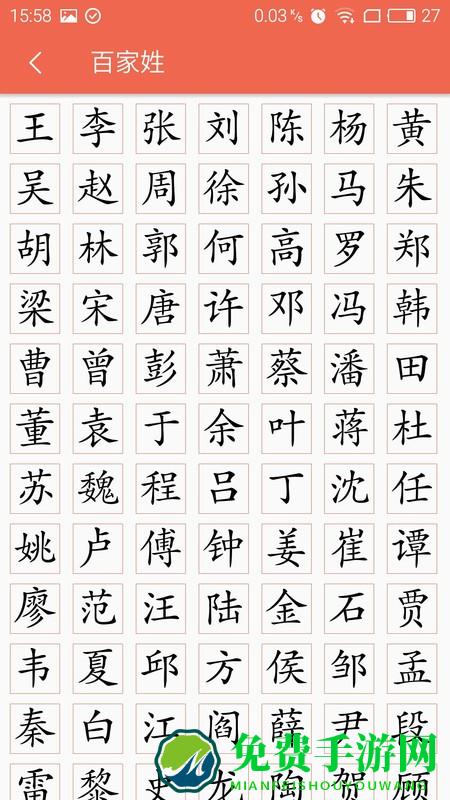 15:58 0.03 K/s 27
百家姓
王 李 张 刘 陈 杨 黄
吴 赵 周 徐 孙 马 朱
胡 林 郭 何 高 罗 郑
梁 宋 唐 许 邓 冯 韩
曹 曾 彭 萧 蔡 潘 田
董 袁 于 余 叶 蒋 杜
苏 魏 程 吕 丁 沈 任
姚 卢 傅 钟 姜 崔 谭
廖 范 汪 陆 金 石 贾
韦 夏 邱 方 侯 邹 孟
秦 白 江 阎 薛 尹 段
雷 黎 史 龙 陶 贺 顾
免费手游网
MIANFEISHOUYOUWANG